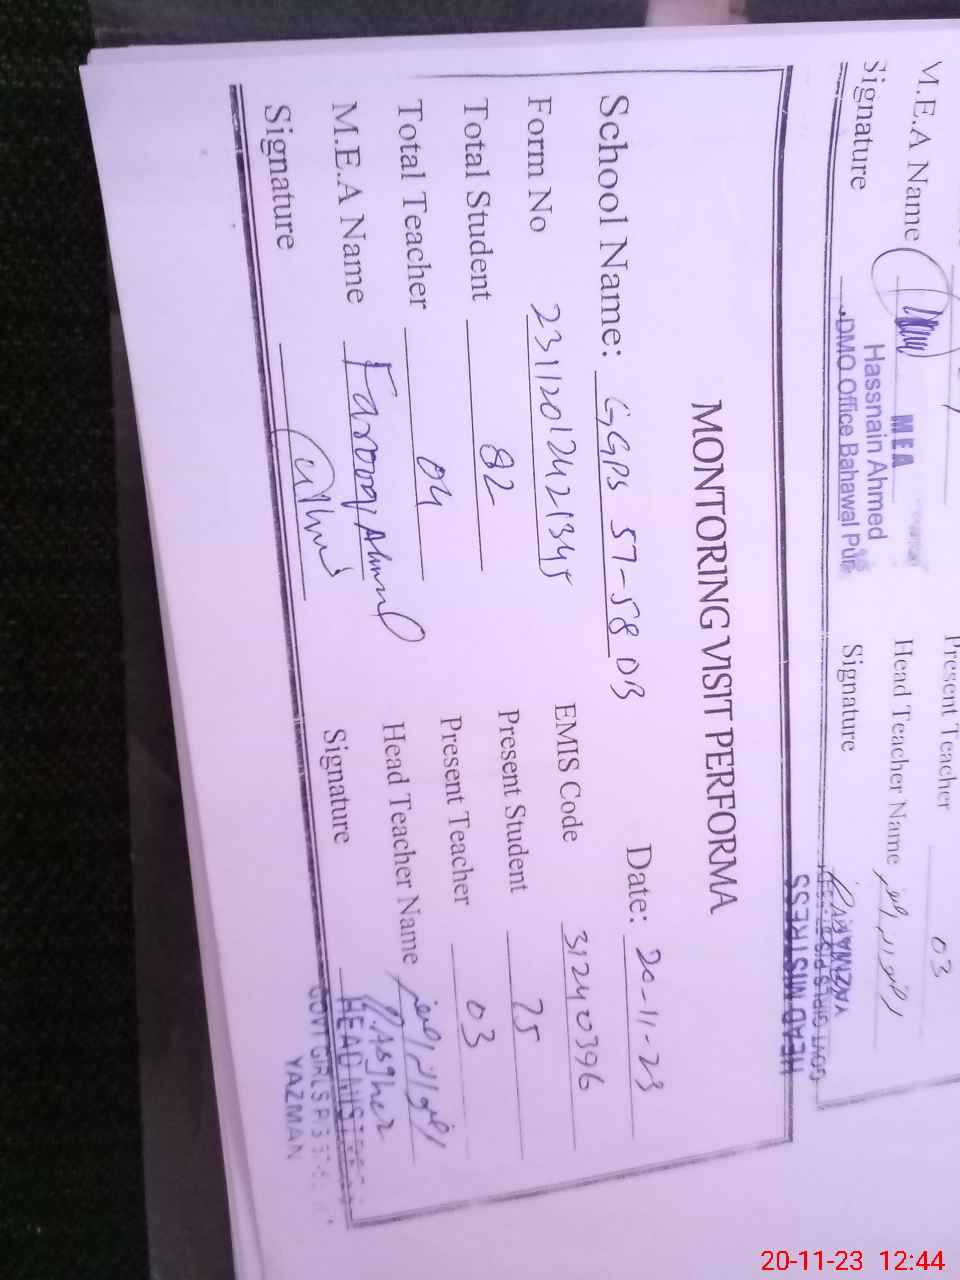 M.E.A Name
Signature
MEA
Hassnain Ahmed
DMO Office Bahawal Pur
Present Teacher 03
Head Teacher Name
Signature
HEAD MISTRESS
YAZMAN
MONTORING VISIT PERFORMA
School Name: GGPS 57-58 DB
Date: 20-11-23
Form No
EMIS Code 31240396
Total Student 82
Present Student 75
Total Teacher 04
Present Teacher 03
M.E.A Name Farooq Ahmed
Head Teacher Name
Signature
Signature R.Asgher
HEAD MISTRESS
GOVT GIRLS P/S
YAZMAN
20-11-23 12:44